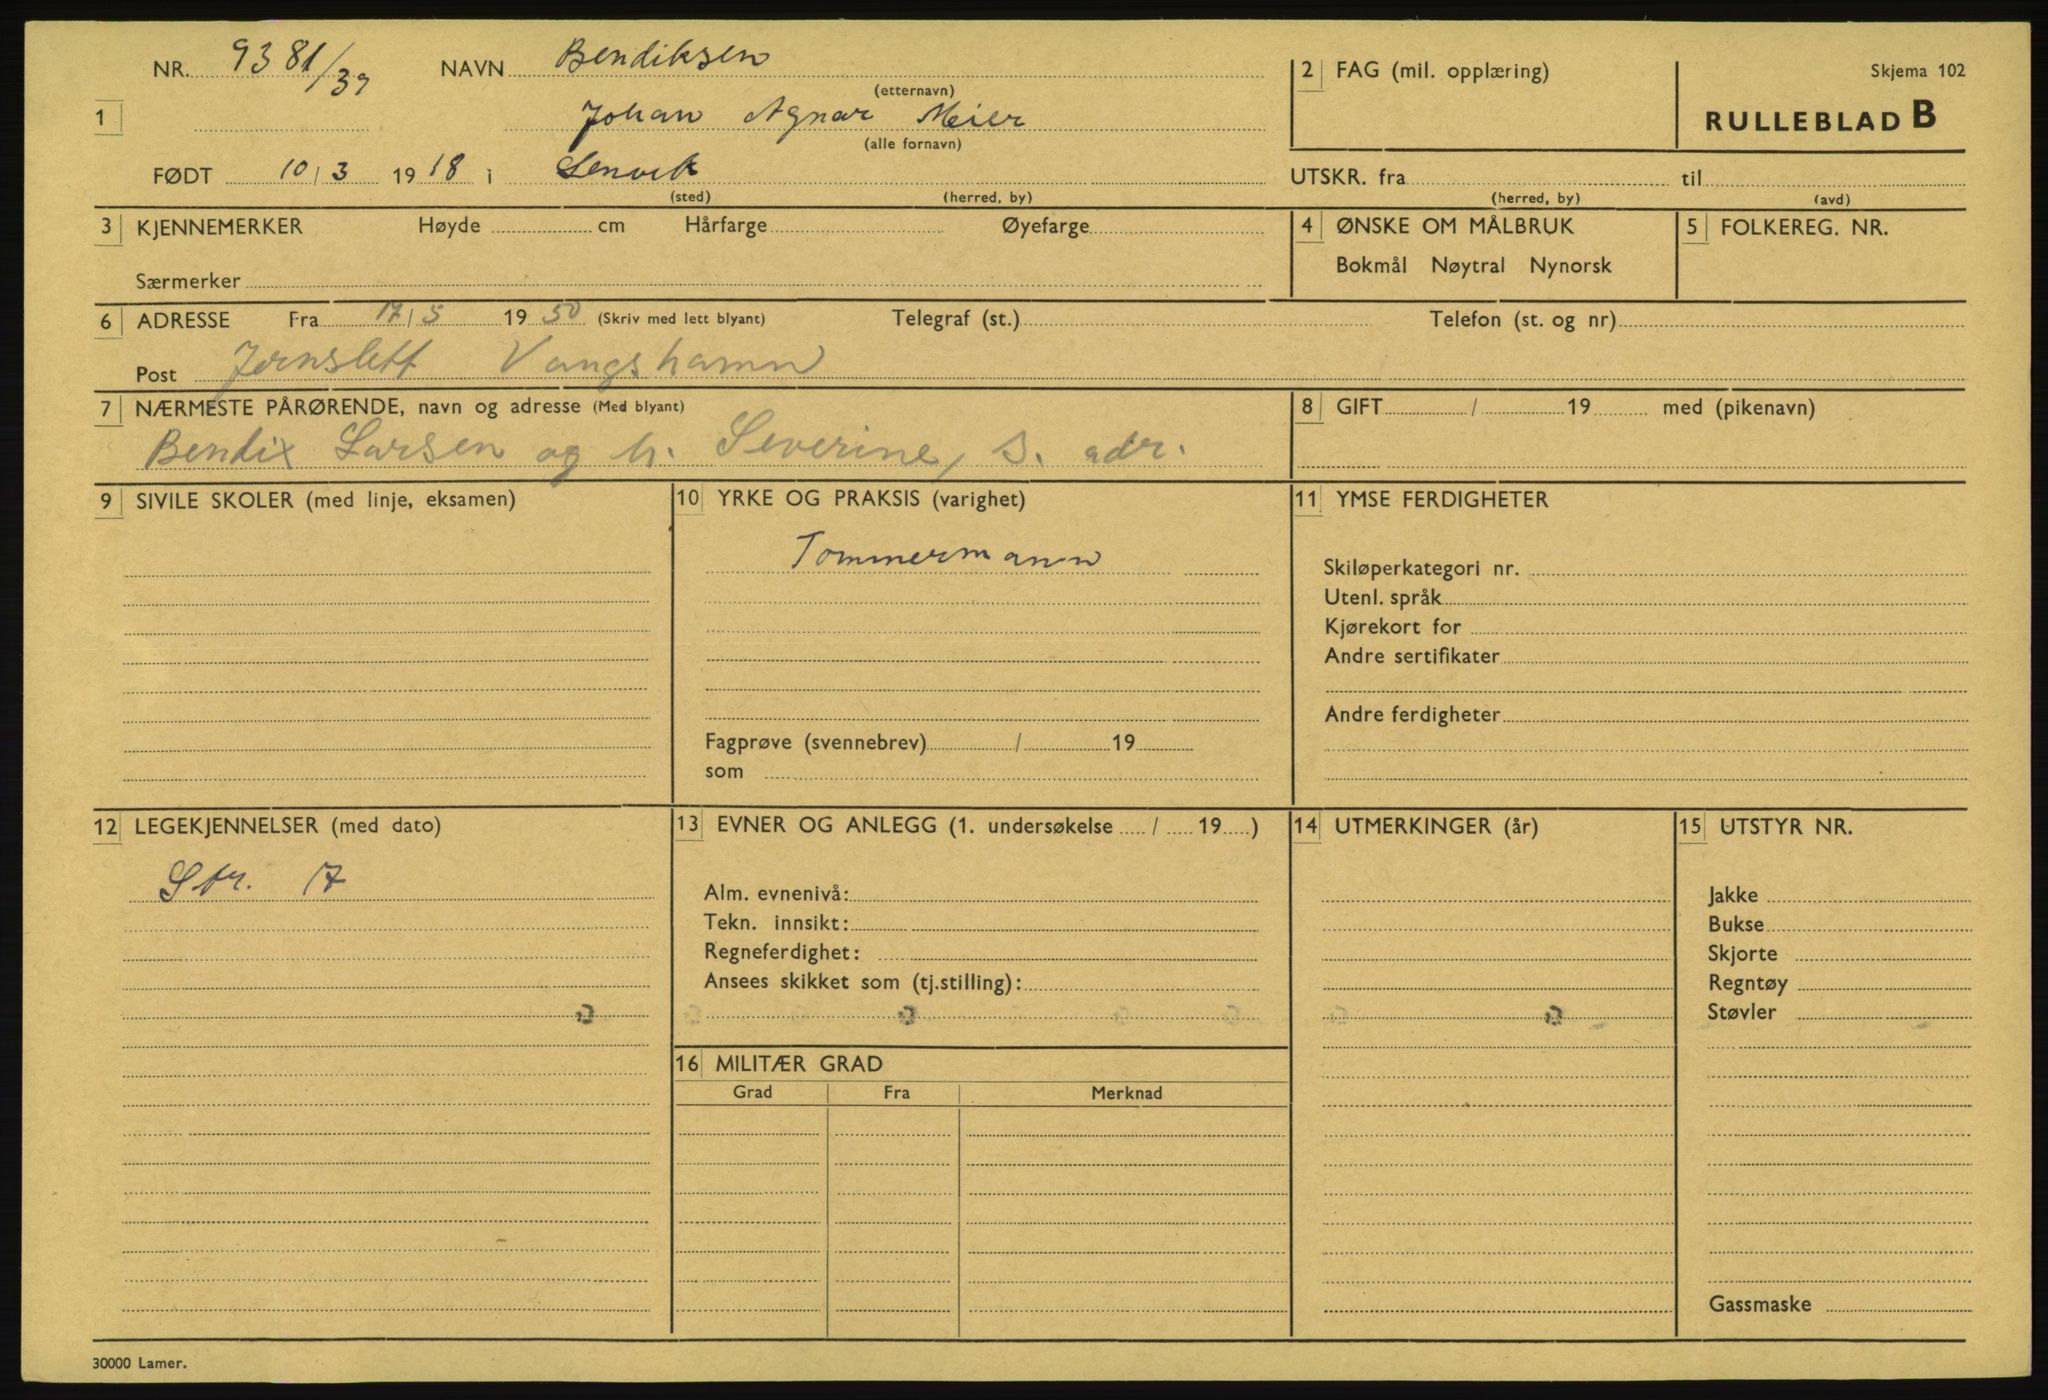 NR. 9381/39 NAVN Bendiksen
(etternavn)
1 Johan Agnar Meier
(alle fornavn)
FØDT 10/3 1918 i Lenvik
(sted) (herred, by)
2 FAG (mil. opplæring)
Skjema 102
RULLEBLAD B
UTSKR. fra til
(herred, by) (avd)
3 KJENNEMERKER Høyde cm Hårfarge Øyefarge
Særmerker
4 ØNSKE OM MÅLBRUK
Bokmål Nøytral Nynorsk
5 FOLKEREG. NR.
6 ADRESSE Fra 17/5 1950 (Skriv med lett blyant) Telegraf (st.) Telefon (st. og nr)
Post Jernslett Vangshamn
7 NÆRMESTE PÅRØRENDE, navn og adresse (Med blyant)
Bendix Larsen og h. Severine, s. adr.
8 GIFT / 19 med (pikenavn)
9 SIVILE SKOLER (med linje, eksamen)
10 YRKE OG PRAKSIS (varighet)
Tommermann
Fagprøve (svennebrev) / 19
som
11 YMSE FERDIGHETER
Skiløperkategori nr.
Utenl. språk
Kjørekort for
Andre sertifikater
Andre ferdigheter
12 LEGEKJENNELSER (med dato)
Str. 17
13 EVNER OG ANLEGG (1. undersøkelse / 19 )
Alm. evnenivå:
Tekn. innsikt:
Regneferdighet:
Ansees skikket som (tj.stilling):
14 UTMERKINGER (år)
15 UTSTYR NR.
Jakke
Bukse
Skjorte
Regntøy
Støvler
Gassmaske
16 MILITÆR GRAD
Grad Fra Merknad
30000 Lamer.